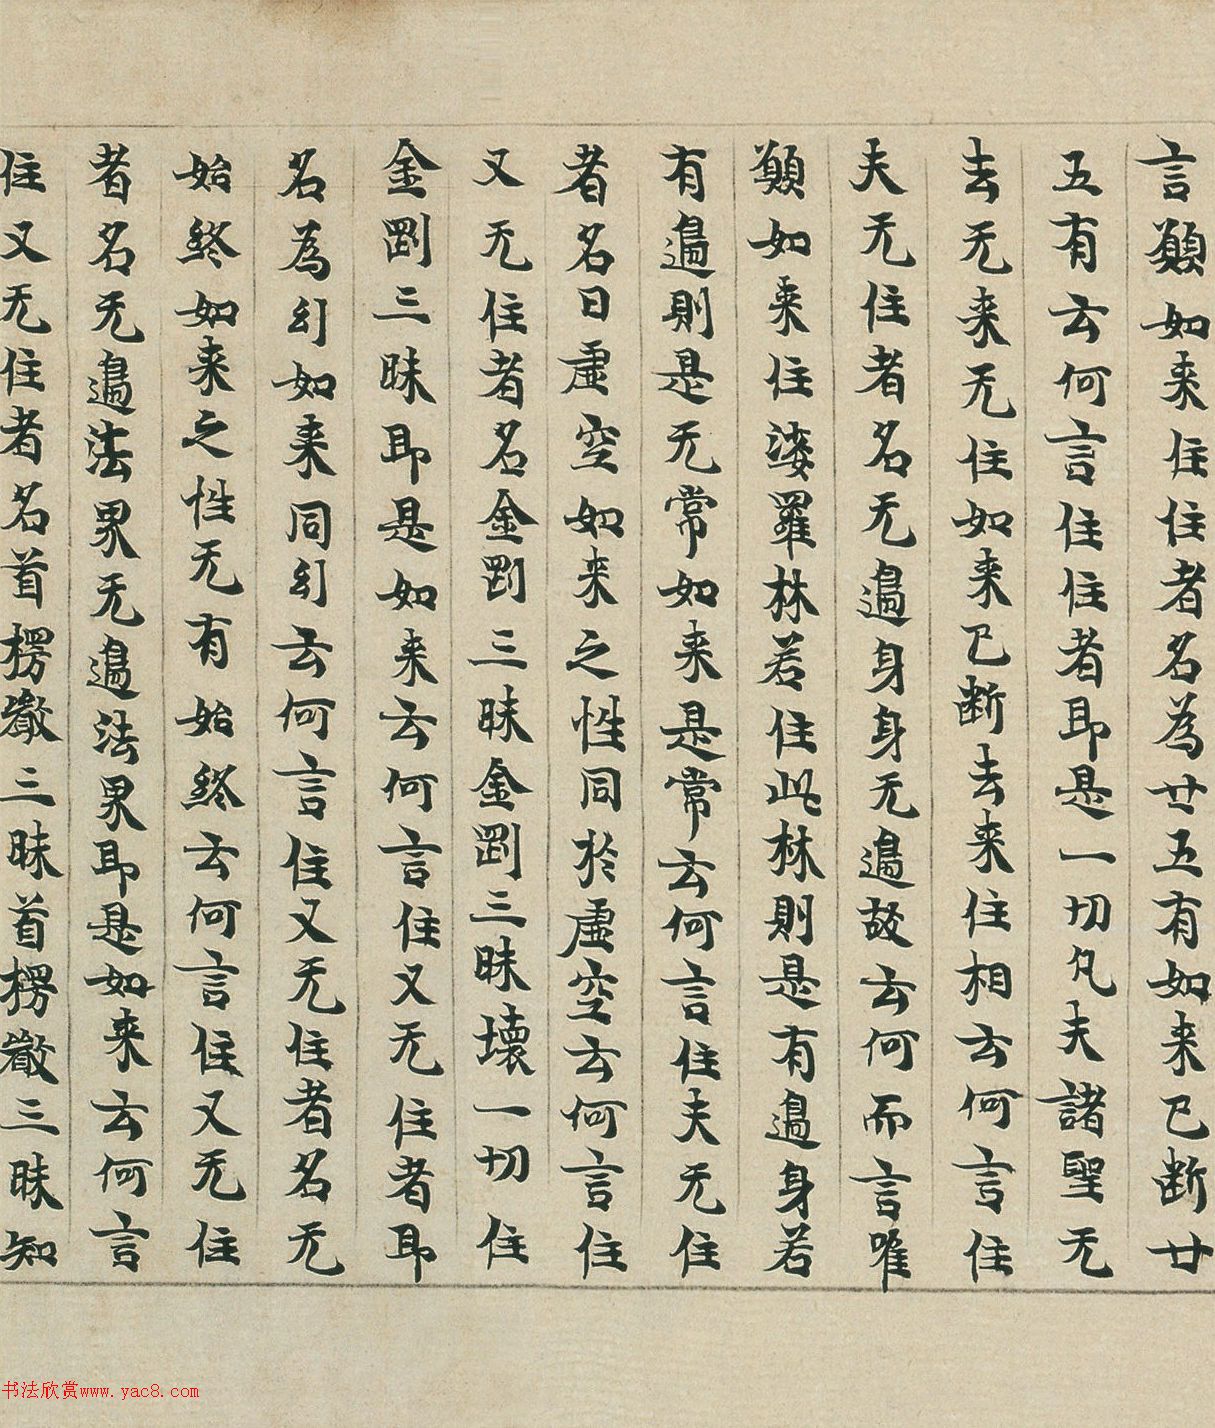 言願如来住住者名為廿五有如来已断廿
五有云何言住住者即是一切凡夫諸聖无
去无来无住如来已断去来住相云何言住
夫无住者名无邊身身无邊故云何而言唯
願如来住娑羅林若住此林則是有邊身若
有邊則是无常如来是常云何言住夫无住
者名曰虛空如来之性同於虛空云何言住
又无住者名金剛三昧金剛三昧壞一切住
金剛三昧即是如来云何言住又无住者即
名為幻如来同幻云何言住又无住者名无
始終如来之性无有始終云何言住又无住
者名无邊法界无邊法界即是如来云何言
住又无住者名首楞嚴三昧首楞嚴三昧知
书法欣赏www.yac8.com